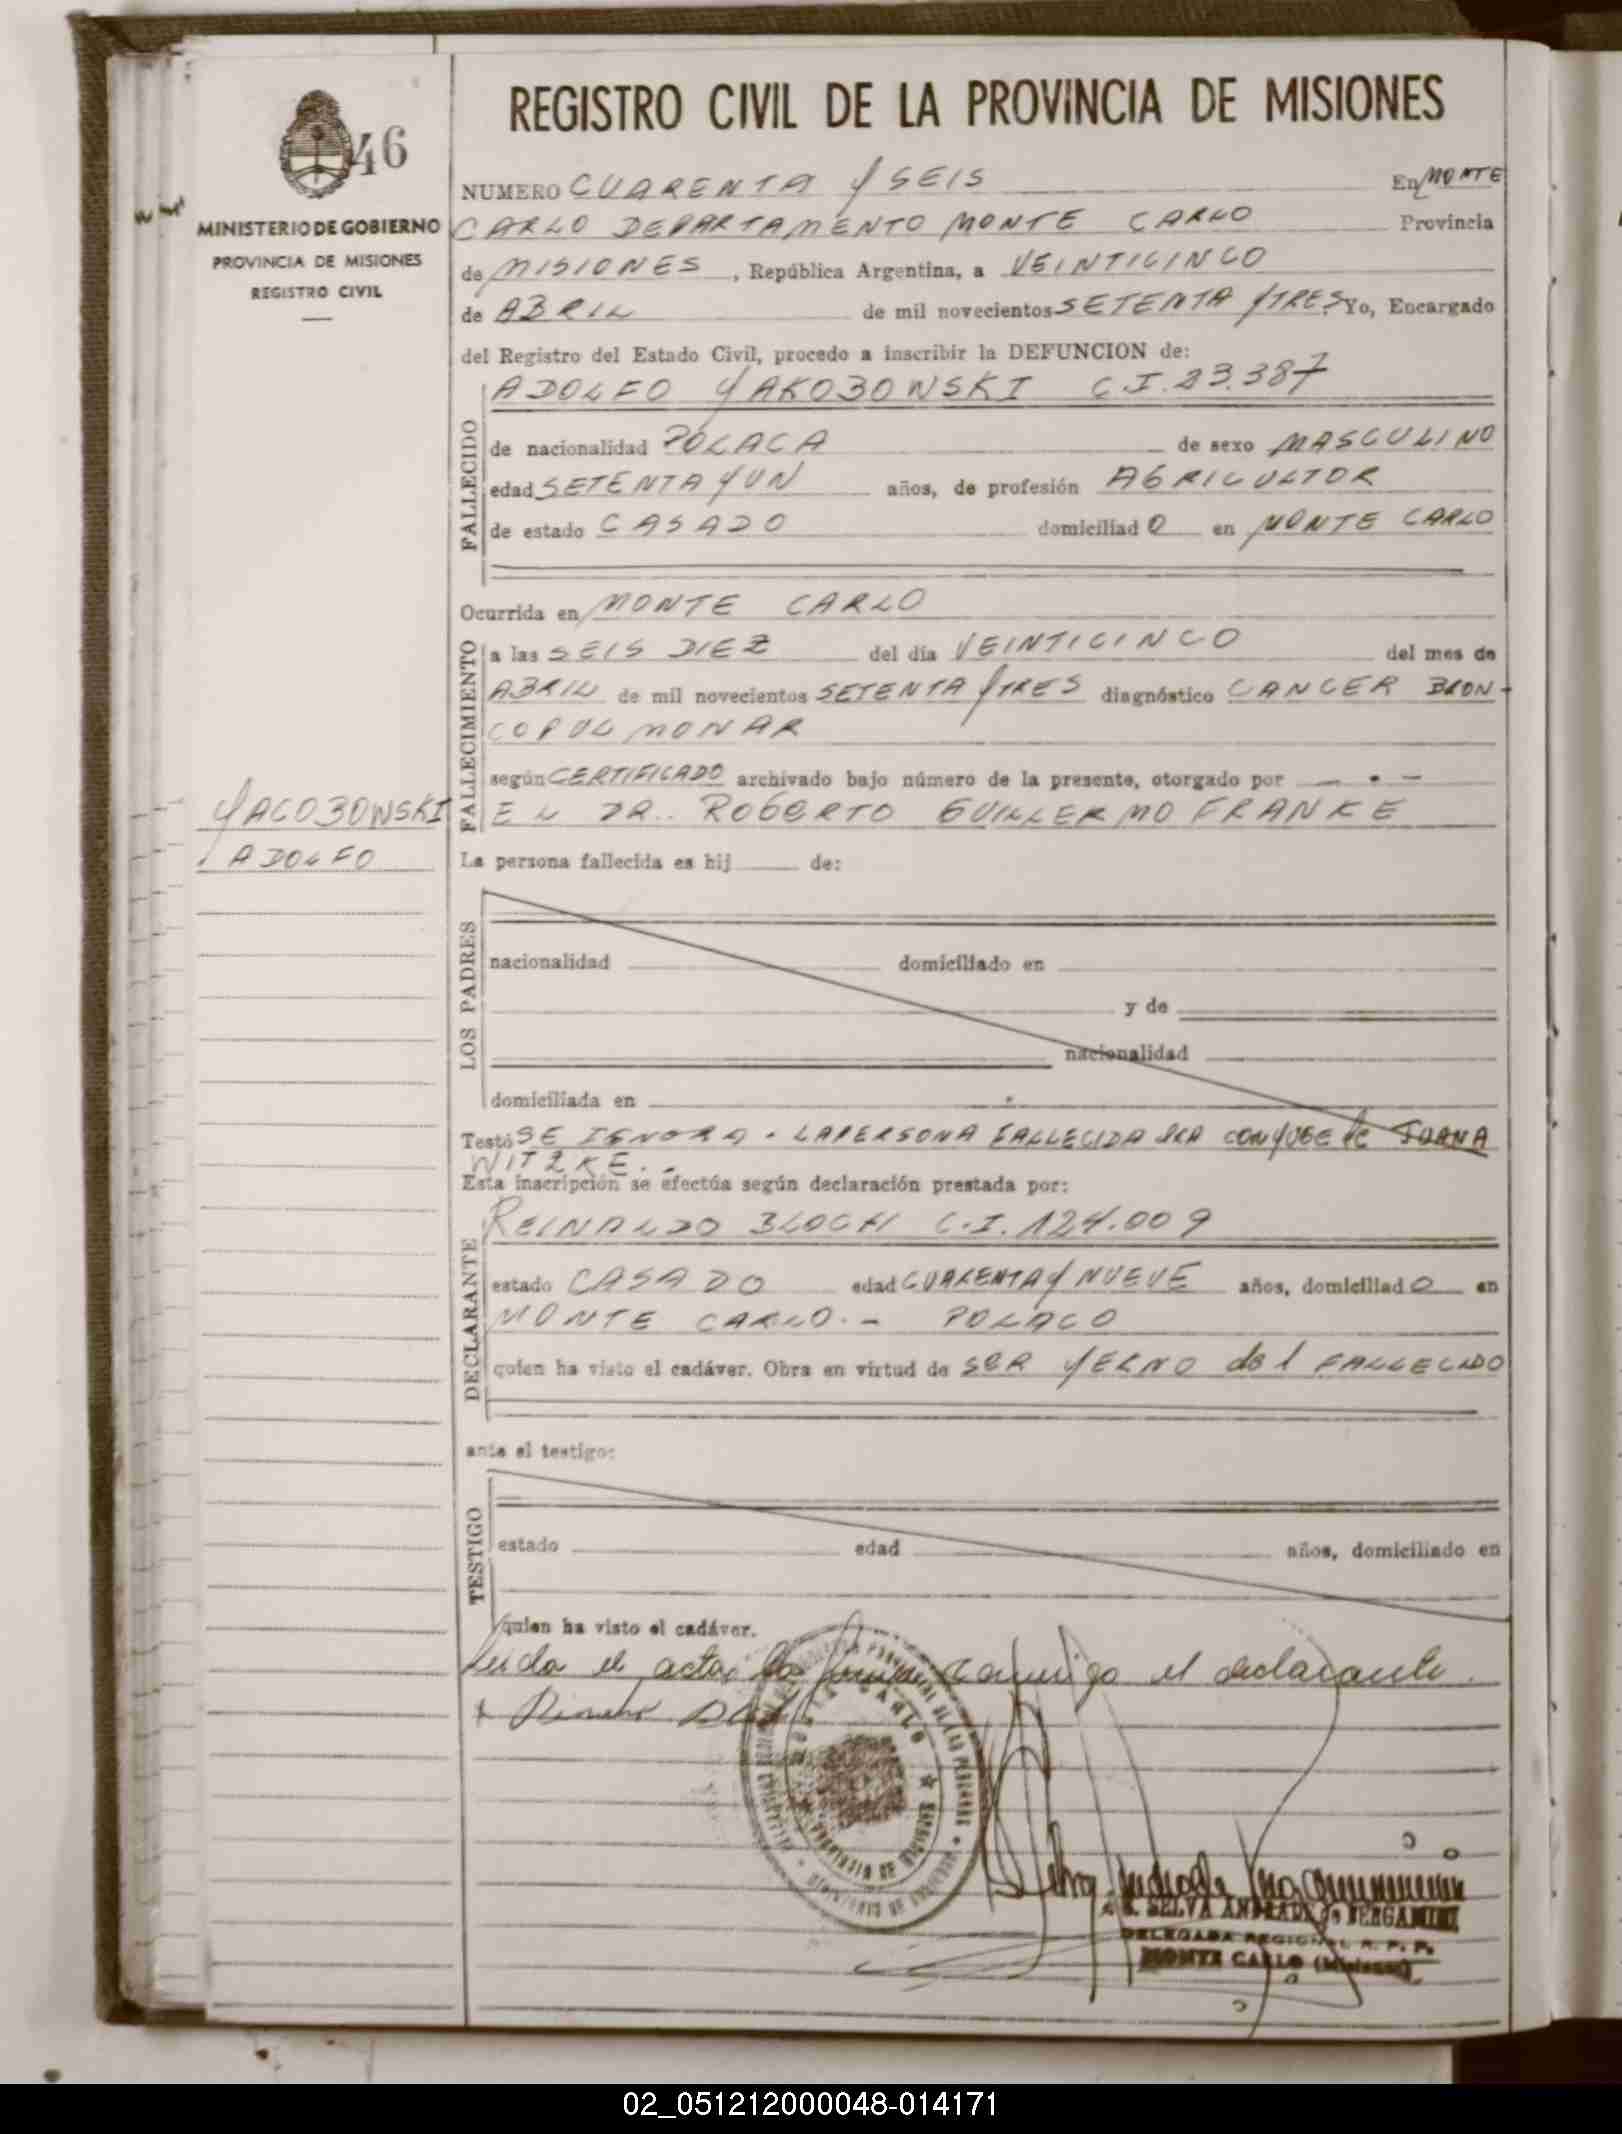 REGISTRO CIVIL DE LA PROVINCIA DE MISIONES
46
MINISTERIO DE GOBIERNO
PROVINCIA DE MISIONES
REGISTRO CIVIL
NUMERO CUARENTA Y SEIS En MONTE
CARLO DEPARTAMENTO MONTE CARLO Provincia
de MISIONES, República Argentina, a VEINTICINCO
de ABRIL de mil novecientos SETENTA Y TRES. Yo, Encargado
del Registro del Estado Civil, procedo a inscribir la DEFUNCION de:
FALLECIDO
ADOLFO YAKOBOWSKI C.I. 23.387
de nacionalidad POLACA de sexo MASCULINO
edad SETENTA Y UN años, de profesión AGRICULTOR
de estado CASADO domiciliad O en MONTE CARLO
Ocurrida en MONTE CARLO
FALLECIMIENTO
a las SEIS DIEZ del día VEINTICINCO del mes de
ABRIL de mil novecientos SETENTA Y TRES diagnóstico CANCER BRON-
COPULMONAR
según CERTIFICADO archivado bajo número de la presente, otorgado por — . —
EL DR. ROBERTO GUILLERMO FRANKE
YACOBOWSKI
ADOLFO
La persona fallecida es hij de:
LOS PADRES
nacionalidad domiciliado en
y de
nacionalidad
domiciliada en
Testó SE IGNORA. LA PERSONA FALLECIDA ERA CONYUGE de JUANA
WITZKE.
Esta inscripción se efectúa según declaración prestada por:
DECLARANTE
REINALDO BLOCH C.I. 124.009
estado CASADO edad CUARENTA Y NUEVE años, domiciliad O en
MONTE CARLO. - POLACO
quien ha visto el cadáver. Obra en virtud de SER YERNO del FALLECIDO
ante el testigo:
TESTIGO
estado edad años, domiciliado en
quien ha visto el cadáver.
Leida el acta, la firma conmigo el declarante.
MONTE CARLO
PROVINCIA DE MISIONES
SELVA ANDRADE de BERGAMINI
DELEGADA REGIONAL R. P. P.
MONTE CARLO (Misiones)
02_051212000048-014171